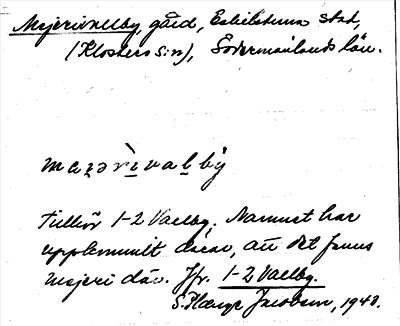 Mejerivallby, gård, Eskilstuna stad,
(Klosters s:n), Södermanlands län.
Tillhör 1-2 Vallby. Namnet har
uppkommit därav, att det finns
mejeri där. Jfr. 1-2 Vallby.
Jacobson, 1940.